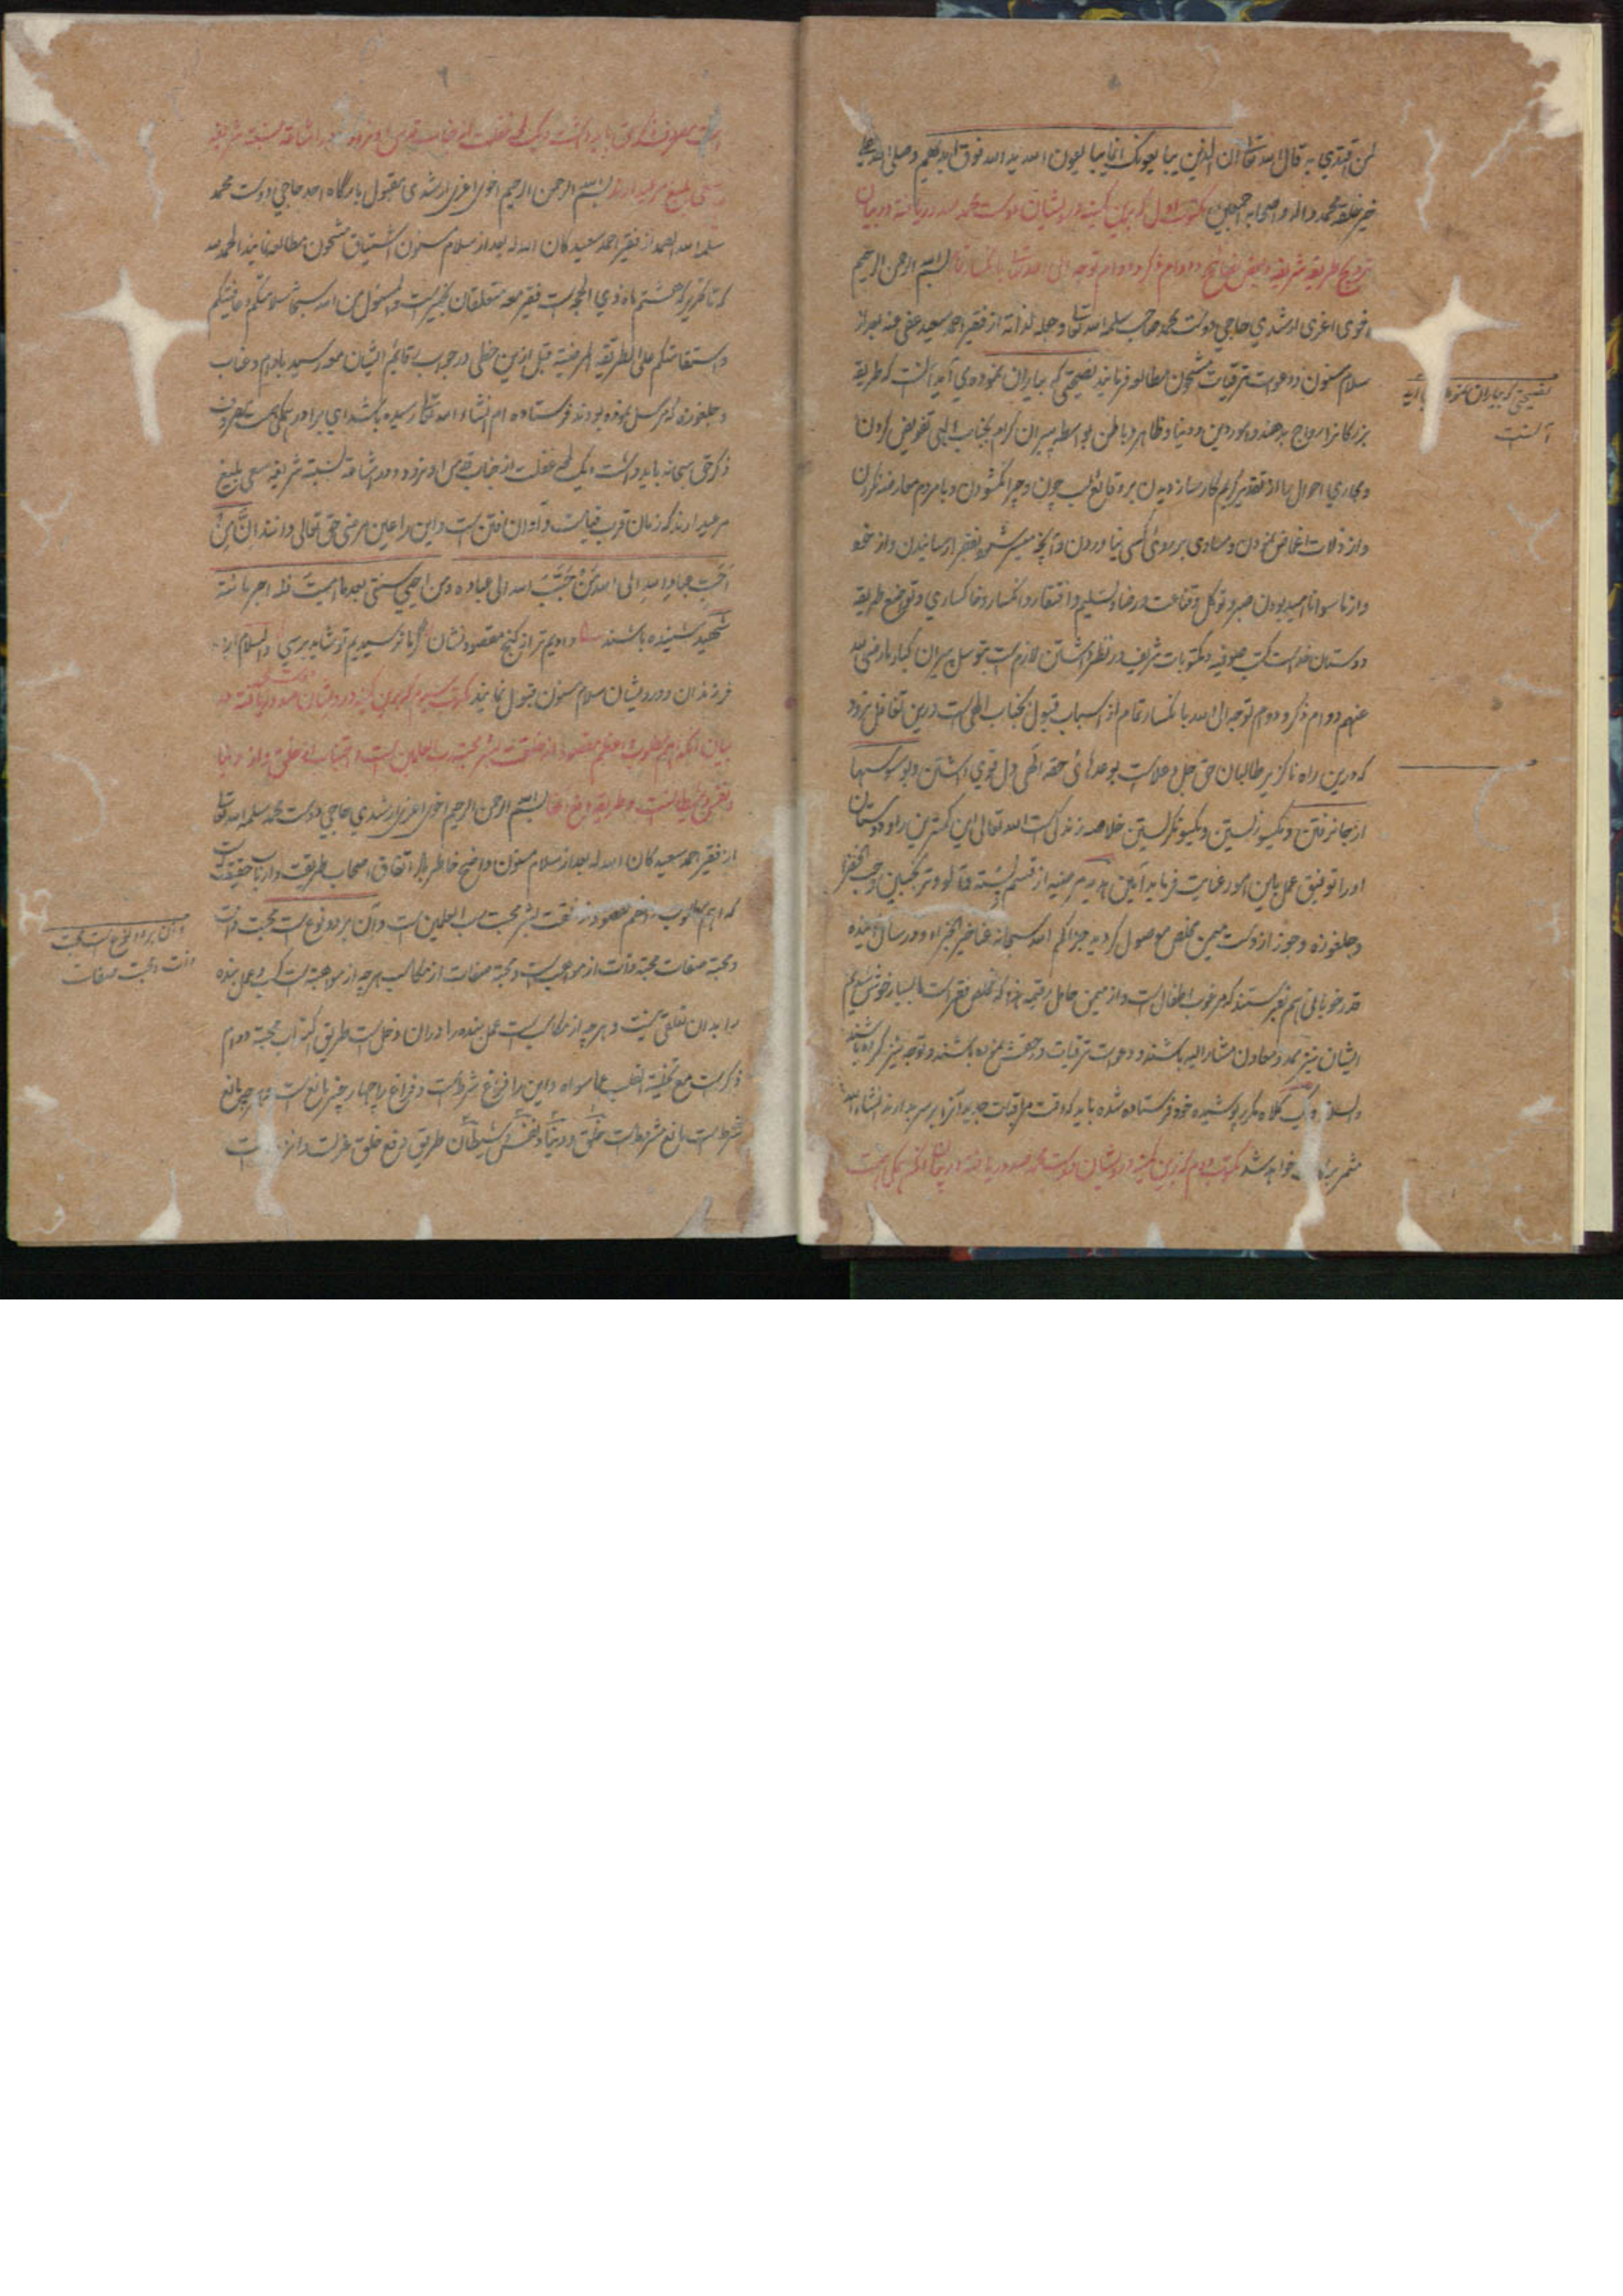 لمن اقتدي به قال الله تعالی ان الذین یبایعونک انما یبایعون الله ید الله فوق ایدیهم وصلی الله علی
خیر خلقه محمد واله واصحابه اجمعین مکتوب اول که باین کمینه درویشان دوست محمد صدور یافته در بیان
ترویج طریقه شریفه وبعض نصایح ودوام ذکر ودوام توجه الی الله بسم الله الرحمن الرحیم
اخوی اعزی ارشدی حاجي دوست محمد صاحب سلمه الله تعالی وجعله از فقیر احمد سعید عفی عنه بعد از
سلام مسنون ودعوات ترقیات مشحون مطالعه فرمایند نصیحتی که بیاران نموده می آید آنست که طریقه
بزرگانرا رواج بدهند وامور دین ودنیا وظاهر وباطن بواسطه پیران کرام بجناب الهی تفویض کردن
ومجاري احوال را از تقدیر کریم کارساز دیدن بر وقایع لب چون وچرا نکشودن وبا مردم معارضه نکردن
واز زلات اغماض نمودن ومساوی بر روی کسی نیاوردن وآنچه میسر شود بفقرا رسانیدن واز خود
واز ماسوا ناامید بودن صبر وتوکل وقناعت ورضا وتسلیم وافتقار وانکسار وخاکساري وتواضع طریقه
دوستان خداست کتب صوفیه ومکتوبات شریف در نظر داشتن لازم است بتوسل پیران کبار رضی الله
عنهم دوام ذکر ودوام توجه الی الله بانکسار تمام از اسباب قبول بجناب الهی است درین تغافل نرود
که درین راه ناگزیر طالبان حق جل وعلاست بوعدهائی حقه الهی دل قوي داشتن وبوسوسها
از جا نرفتن ویکسو زیستن ویکسو نگریستن خلاصه زندگی است الله تعالی این کمترین را ودوستان
اورا توفیق عمل باین امور عنایت فرماید آمین هدیه مرضیه از قسم پسته وآلو وترنجبین وحب الخضرا
وجلغوزه وجوز از دوست میمین مخلص موصول گردید جزاکم الله سبحانه عنا خیر الجزاء ودر سال آینده
قدر خوبانی هم بفرستند که مرغوب اطفال است واز میمن حامل رقیمه هذا که مخلص فقیر است بسیار خوش شدیم
ایشان نیز ممد ومعاون مشار الیه باشند ودعوات ترقیات در حقش نموده باشند وتوجه نیز کرده باشند
والسلام ویک کلاه مکرر پوشیده خود فرستاده شده باید که وقت مراقبات جدید آنرا بر سر بدارند انشاء الله
مثمر خواهد شد مکتوب دوم که باین کمینه درویشان دوست محمد صدور یافته در بیان آنکه همگی همت
نصیحتی که بیاران نموده می آید
آنست
مصروف ذکر حق باید داشت ویک لمحه غفلت از جناب قدس او نرود ودر اشاعة نسبة شریفه
سعی بلیغ مرعیدارند بسم الله الرحمن الرحیم اخوی اعزی ارشدی مقبول بارگاه احد حاجي دوست محمد
سلمه الله الصمد از فقیر احمد سعید کان الله له بعد از سلام مسنون اشتیاق مشحون مطالعه نمایند الحمد لله
که تا تحریر که هشتم ماه ذي الحجه است فقیر معه متعلقان بخیریت والمسئول من الله سبحانه سلامتکم وعافیتکم
واستقامتکم علی الطریقة المرضیة قبل ازین خطی در جواب رقایم ایشان مع رسید بادام وعناب
وجلغوزه که مرسل نموده بودند فرستاده ام انشاء الله تعالی رسیده باشد ای برادر همگی همت مصروف
ذکر حق سبحانه باید داشت ویک لمحه غفلت از جناب قدس او نرود ودر اشاعة نسبة شریفه سعی بلیغ
مرعیدارند که زمان قرب قیامت وآوان فتن است واین را عین مرضی حق تعالی دانند انّ من
احب عباد الله الی الله من حبّب الله الی عباده ومن احیي سنتی بعد ما امیتت فله اجر مائة
شهید شنیده باشند دادیم ترا از گنج مقصود نشان گر ما نرسیدیم تو شاید برسی والسلام
فرزندان ودرویشان سلام مسنون قبول نمایند مکتوب سیوم که باین کمینه درویشان صدور یافته در
بیان آنکه اهم مطلوب واعظم مقصود از خلقت بشر محبت رب العلمین است واجتناب از خلق واز دنیا
ونفس وشیطانست وطریقه دفع آنها بسم الله الرحمن الرحیم اخوی اعزی ارشدي حاجي دوست محمد سلمه الله تعالی
از فقیر احمد سعید کان الله له بعد از سلام مسنون واضح خاطر باد اتفاق اصحاب طریقت وارباب حقیقت است
که اهم مطلوب واعظم مقصود از خلقت بشر محبت رب العلمین است وآن بر دو نوع است محبت ذات
ومحبة صفات محبة ذات از مواهب است ومحبة صفات از مکاسب هرچه از مواهبة است کسب وعمل بنده
را بدان تعلقی نیست وهرچه از مکاسب است عمل بنده را دران دخل است طریق اکتساب محبة دوام
ذکر است مع تخلیة القلب عما سواه واین را فراغ شرط است وفراغ را چهار چیز مانع است
شرط است مانع مشروط است خلق ودنیا ونفس وشیطان طریق دفع خلق عزلت
وآن بر دو نوع است محبت
ذات ومحبت صفات